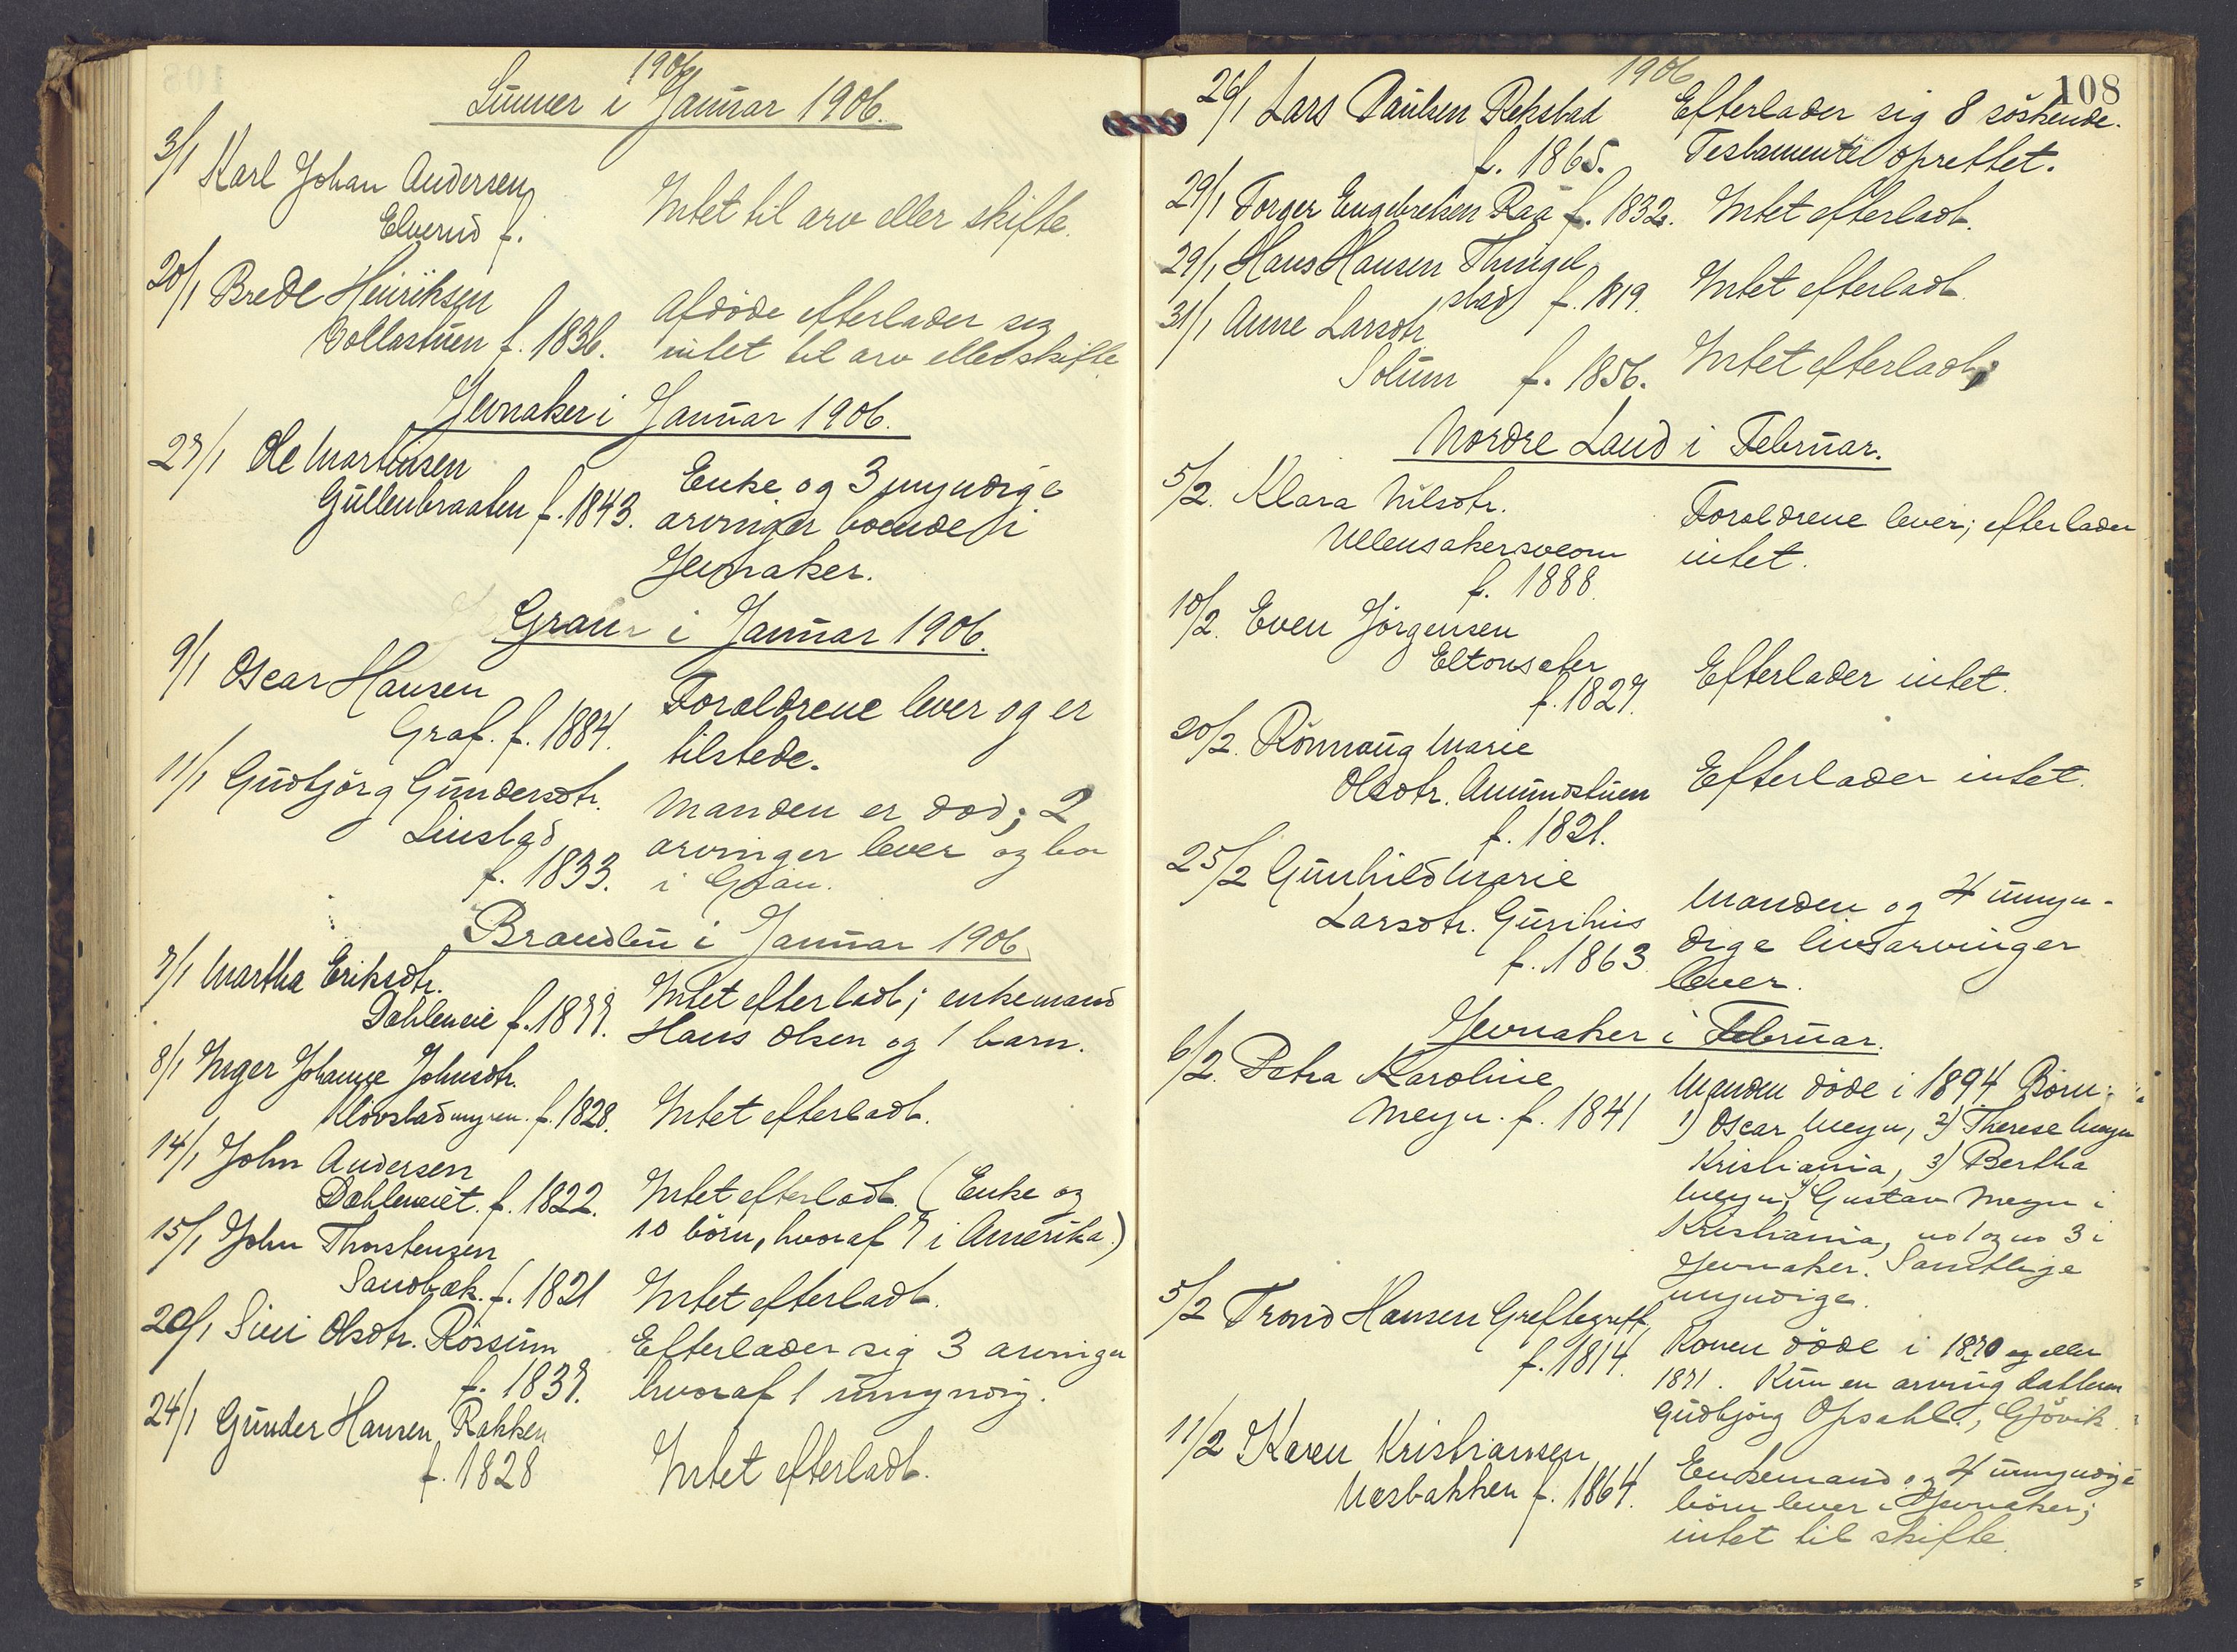 1906
Lunner i Januar 1906.
3/1 Karl Johan Andersen
Elverud f.
Intet til arv eller skifte.
20/1 Brede Henriksen
Dollastuen f. 1836.
Afdøde efterlader sig
intet til arv eller skifte
Jevnaker i Januar 1906.
27/1 Ole Martinsen
Gullenbraaten f. 1843.
Enke og 3 myndige
arvinger boende i
Jevnaker.
Gran i Januar 1906.
9/1 Oscar Hansen
Graf. f. 1884.
Forældrene lever og er
tilstede.
11/1 Gudbjørg Gundersdtr.
Linstad
f. 1833.
Manden er død; 2
arvinger lever og bor
i Gran.
Brandbu i Januar 1906
7/1 Martha Eriksdtr.
Dæhleneie f. 1877.
Intet efterladt; enkemand
Hans Olsen og 1 barn.
8/1 Inger Johanne Johnsdtr.
Kløvstadmyren. f. 1828.
Intet efterladt.
14/1 John Andersen
Dæhleneiet. f. 1822.
Intet efterladt. (Enke og
10 børn, hvoraf 7 i Amerika.)
15/1 John Thorstensen
Sandbæk. f. 1821
Intet efterladt.
20/1 Siri Olsdtr. Røssum
f. 1837.
Efterlader sig 3 arvinger
hvoraf 1 umyndig.
24/1 Gunder Hansen Rækken
f. 1828
Intet efterladt.
1906
108
26/1 Lars Paulsen Rekstad
f. 1865.
Efterlader sig 8 søskende.
Testamente oprettet.
29/1 Torger Engebretsen Raa f. 1832. Intet efterladt.
29/1 Hans Hansen Thingel
stad f. 1819. Intet efterladt
31/1 Anne Larsdtr
Solum f. 1856. Intet efterladt;
Nordre Land i Februar.
5/2. Klara Nilsdtr.
Ullensakersveom
f. 1888
Forældrene lever; efterlader
intet.
10/2. Even Jørgensen
Eltonsæter
f. 1827.
Efterlader intet.
20/2. Rønnaug Marie
Olsdtr. Amundstuen
f. 1821.
Efterlader intet.
25/2 Gunhild Marie
Larsdtr. Gurihus
f. 1863
Manden og 4 umyn-
dige livsarvinger
lever.
Jevnaker i Februar.
6/2. Petra Karoline
Meyn. f. 1841
Manden døde i 1894 Børn:
1) Oscar Meyn, 2) Therese Meyn
Kristiania, 3) Bertha
Meyn, 4) Gustav Meyn i
Kristiania, no 1 og no 3 i
Jevnaker. Samtlige
myndige.
5/2 Trond Hansen Greftegreff,
f. 1814.
Konen døde i 1870 eller
1871. Kun en arving datteren
Gudbjørg Opsahl, Gjøvik.
11/2 Karen Kristiansen
Næsbakken f. 1864.
Enkemand og 4 umyndige
børn lever i Jevnaker;
intet til skifte.